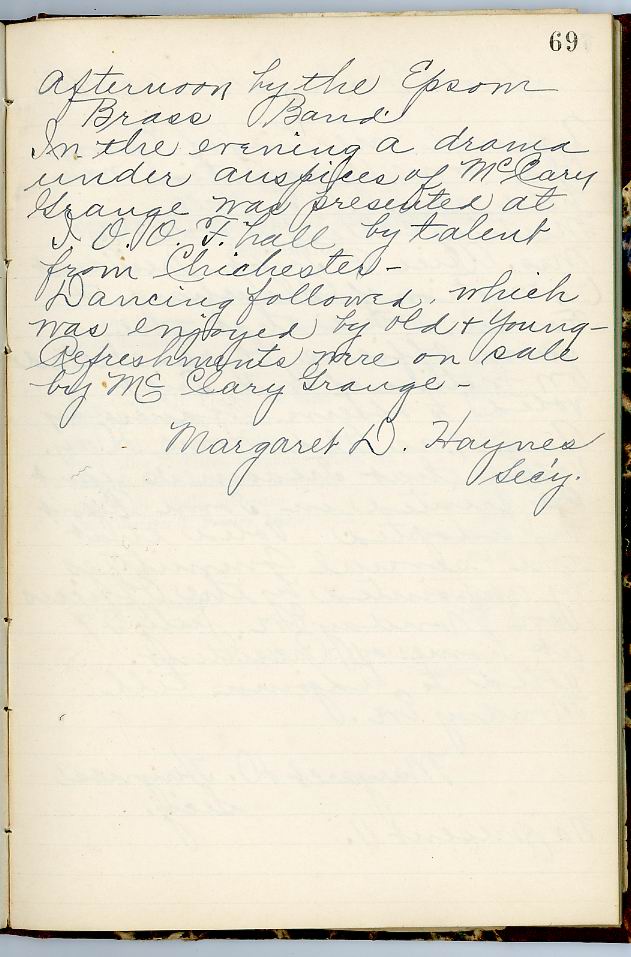 69
afternoon by the Epsom
Brass Band.
In the evening a drama
under auspices of McClary
Grange was presented at
I. O. O. F. hall by talent
from Chichester -
Dancing followed, which
was enjoyed by old + young -
Refreshments were on sale
by Mc Clary Grange -
Margaret D. Haynes
Sec'y.